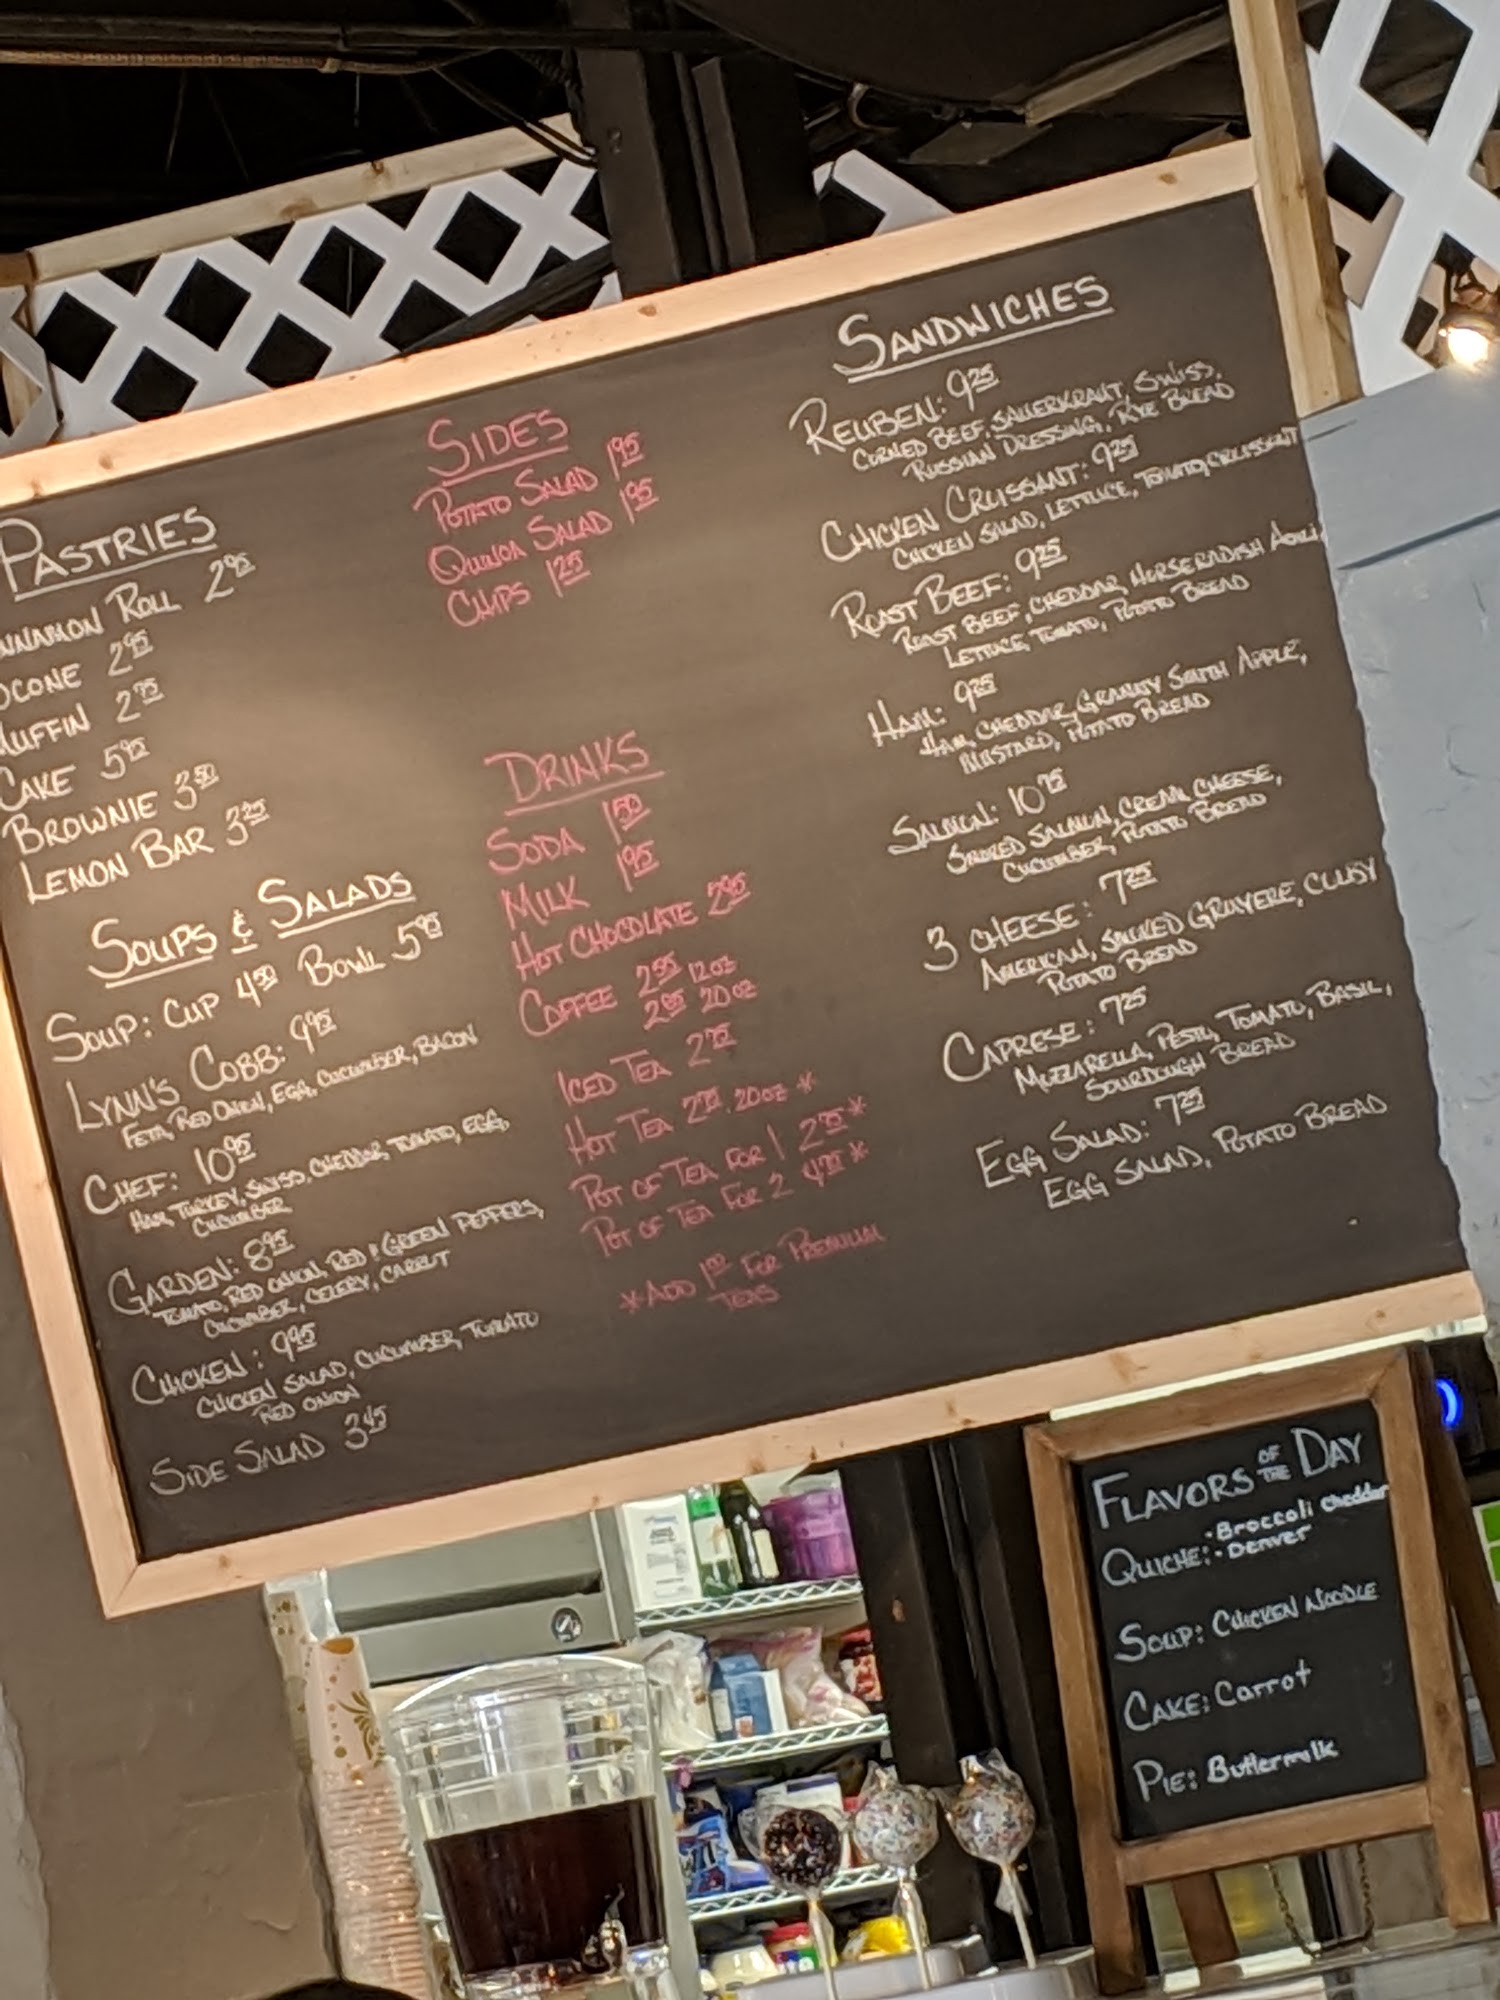 PASTRIES
CINNAMON ROLL 2.95
SCONE 2.95
MUFFIN 2.75
CAKE 5.95
BROWNIE 3.50
LEMON BAR 3.25
SOUPS & SALADS
SOUP: CUP 4.50 BOWL 5.95
LYNN'S COBB: 9.95
FETA, RED ONION, EGG, CUCUMBER, BACON
CHEF: 10.95
HAM, TURKEY, SWISS, CHEDDAR, TOMATO, EGG,
CUCUMBER
GARDEN: 8.95
TOMATO, RED ONION, RED & GREEN PEPPERS,
CUCUMBER, CELERY, CARROT
CHICKEN: 9.95
CHICKEN SALAD, CUCUMBER, TOMATO
RED ONION
SIDE SALAD 3.45
SIDES
POTATO SALAD 1.95
QUINOA SALAD 1.95
CHIPS 1.25
DRINKS
SODA 1.50
MILK 1.95
HOT CHOCOLATE 2.95
COFFEE 2.55 12oz
2.85 20oz
ICED TEA 2.75
HOT TEA 20oz *
POT OF TEA FOR 1 2.75 *
POT OF TEA FOR 2 *
*ADD 1.00 FOR PREMIUM
TEAS
SANDWICHES
REUBEN: 9.25
CORNED BEEF, SAUERKRAUT, SWISS,
RUSSIAN DRESSING, RYE BREAD
CHICKEN CRUISSANT: 9.25
CHICKEN SALAD, LETTUCE, TOMATO, CRUISSANT
ROAST BEEF: 9.25
ROAST BEEF, CHEDDAR, HORSERADISH AOILI,
LETTUCE, TOMATO, POTATO BREAD
HAM: 9.25
HAM, CHEDDAR, GRANNY SMITH APPLE,
MUSTARD, POTATO BREAD
SALMON: 10.75
SMOKED SALMON, CREAM CHEESE,
CUCUMBER, POTATO BREAD
3 CHEESE: 7.25
AMERICAN, SMOKED GRUYERE, COLBY
POTATO BREAD
CAPRESE: 7.25
MOZZARELLA, PESTO, TOMATO, BASIL,
SOURDOUGH BREAD
EGG SALAD: 7.25
EGG SALAD, POTATO BREAD
FLAVORS OF THE DAY
QUICHE: · Broccoli Cheddar
· Denver
SOUP: CHICKEN NOODLE
CAKE: Carrot
PIE: Buttermilk